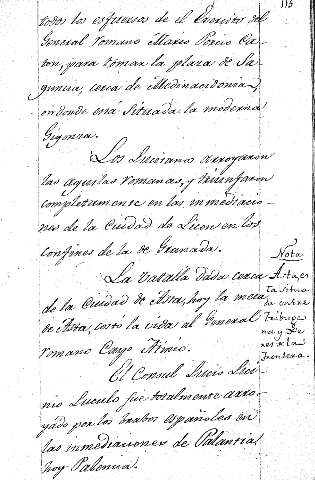 115
todos los esfuersos de el Exercito del
General romano Marco Porcio Ca-
ton, para tomar la plaza de Sa
guncia, cerca de Medinacidonia,
en donde está situada la moderna
Gigonza.
Los Lucitanos arroyaron
las aguilas romanas, y triunfaron
completamente en las inmediacio-
nes de la Ciudad de Licon en los
confines de la de Granada.
La batalla dada cerca
de la Ciudad de Asta, hoy la mesa
de Asta, costo la vida al General
romano Cayo Atinio.
El Consul Lucio Lici-
nio Luculo fue totalmente arro-
yado por los brabos españoles en
las inmediaciones de Palantia
hoy Palencia.
Nota
Asta, es
ta situa
da entre
Trebuge
na y Xe
rez de la
Frontera.